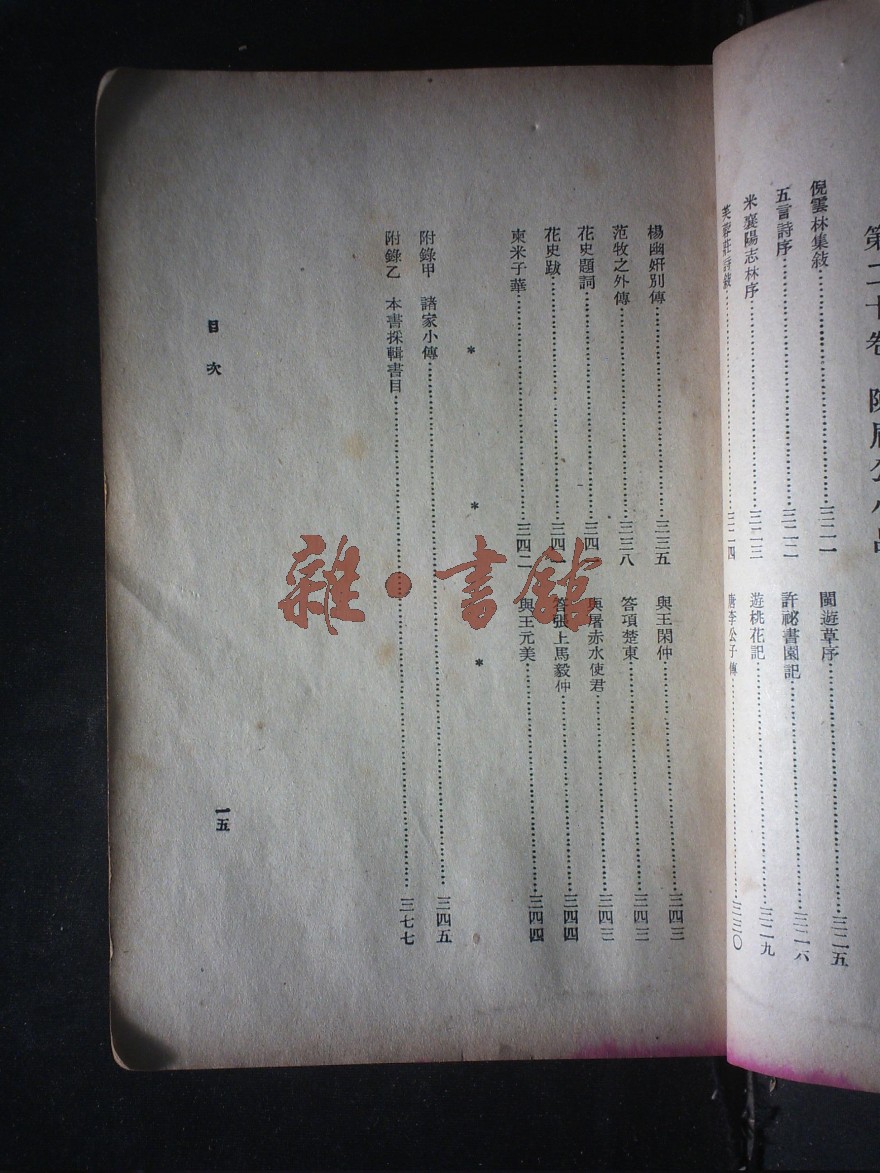 第二十卷 陳眉公小品
倪雲林集敍……三二一
閩遊草序……三二五
五言詩序……三二二
許祕書園記……三二六
米襄陽志林序……三二三
遊桃花記……三二九
芙蓉莊詩敍……三二四
唐李公子傳……三三〇
楊幽妍別傳……三三五
與王閑仲……三四三
范牧之外傳……三三八
答項楚東……三四三
花史題詞……三四一
與屠赤水使君……三四三
花史跋……三四一
答張上馬毅仲……三四四
柬米子華……三四二
與王元美……三四四
* * *
附錄甲 諸家小傳……三四五
附錄乙 本書採輯書目……三七七
目次
一五
雜·書館